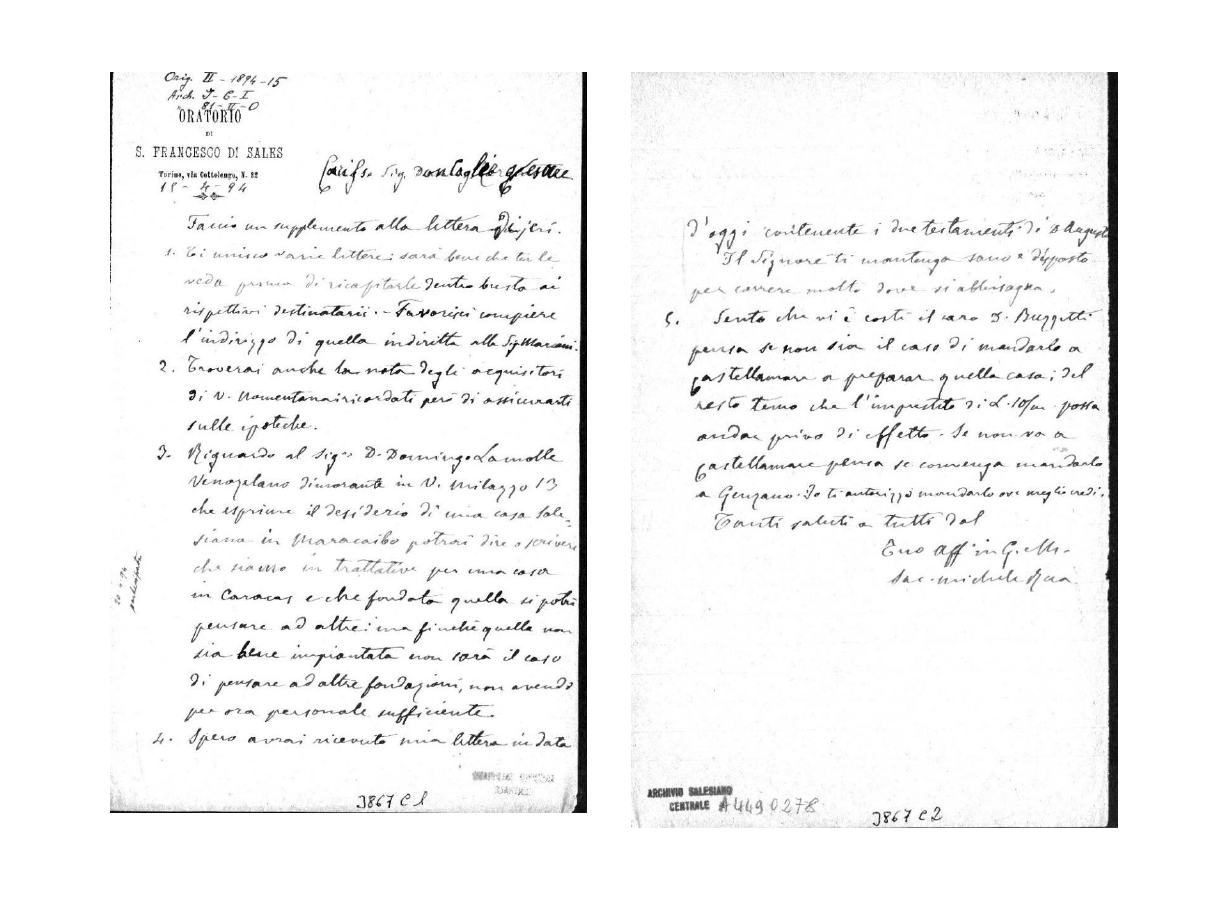 Orig. II - 1894-15
Arch. J-6-I
81-II-0
ORATORIO
DI
S. FRANCESCO DI SALES
Torino, via Cottolengo, N. 32
18-4-94
Cariss.o Sig. Don Cagliero Cesare
Faccio un supplemento alla lettera di jeri.
1. Ti unisco varie lettere: sarà bene che tu le
veda prima di ricapitarle dentro busta ai
rispettivi destinatarii. - Favorisci compiere
l'indirizzo di quella indiritta alla Sig. Mariani.
2. Troverai anche la nota degli acquisitori
di V. Nomentana: ricordati però di assicurarti
sulle ipoteche.
3. Riguardo al Sig.r D. Domingo Lamolle
Venezolano dimorante in V. Milazzo 13
che esprime il desiderio di una casa Sale-
siana in Maracaibo potrai dire o scrivere
che siamo in trattative per una casa
in Caracas e che fondata quella si potrà
pensare ad altre: ma finchè quella non
sia bene impiantata non sarà il caso
di pensare ad altre fondazioni, non avendo
per ora personale sufficiente.
4. Spero avrai ricevuto mia lettera in data
J867 C1
d'oggi contenente i due testamenti di D Augusto
Il Signore ti mantenga sano e disposto
per correre molto dove si abbisogna.
5. Sento che vi è costì il caro D. Buzzetti
pensa se non sia il caso di mandarlo a
Castellamare a preparar quella casa; del
resto temo che l'imprestito di L. 10/m. possa
andar privo di effetto. Se non va a
Castellamare pensa se convenga mandarlo
a Genzano. Io ti autorizzo mandarlo ove meglio credi.
Tanti saluti a tutti dal
Tuo Aff in G. M.
Sac. Michele Rua
ARCHIVIO SALESIANO
CENTRALE A4490278
J867 C2